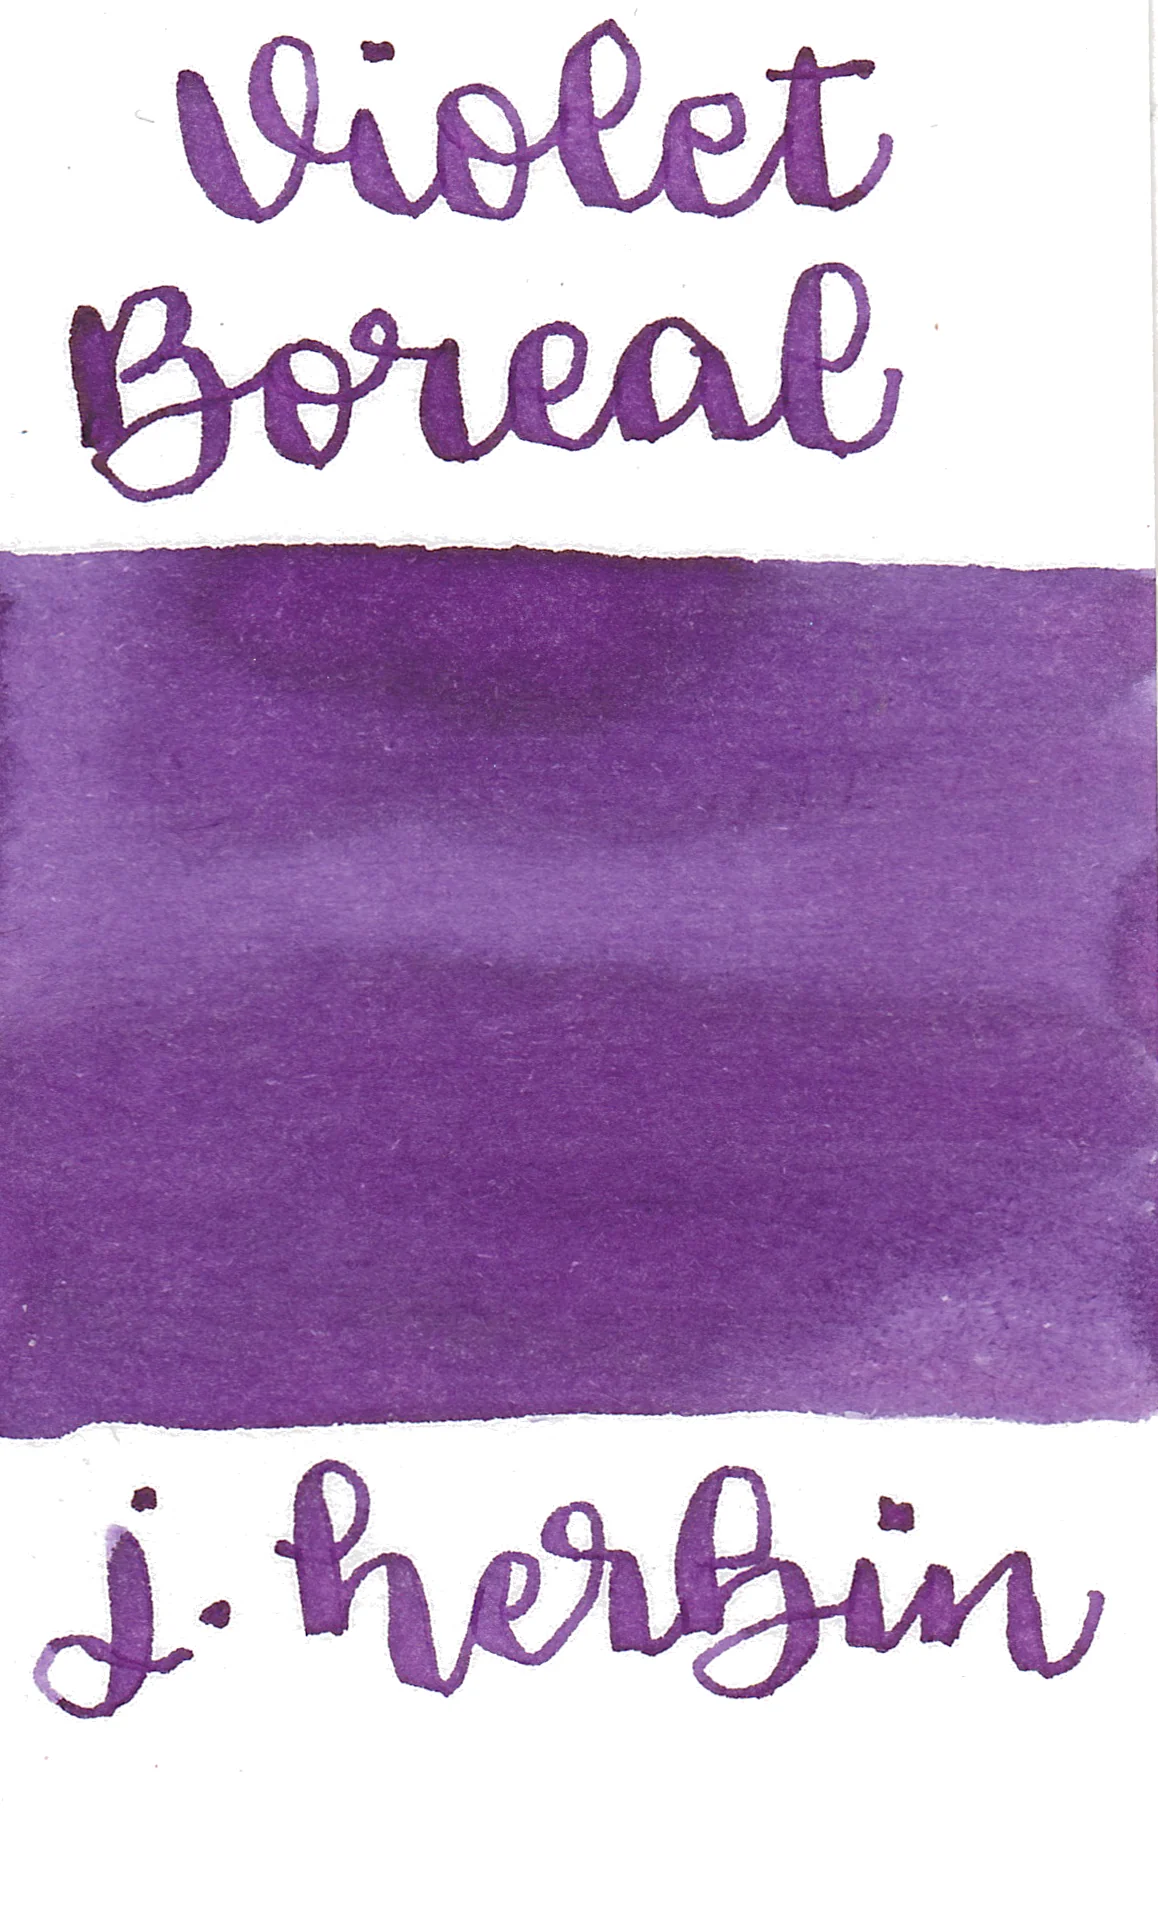 Violet
Boreal
j. herbin